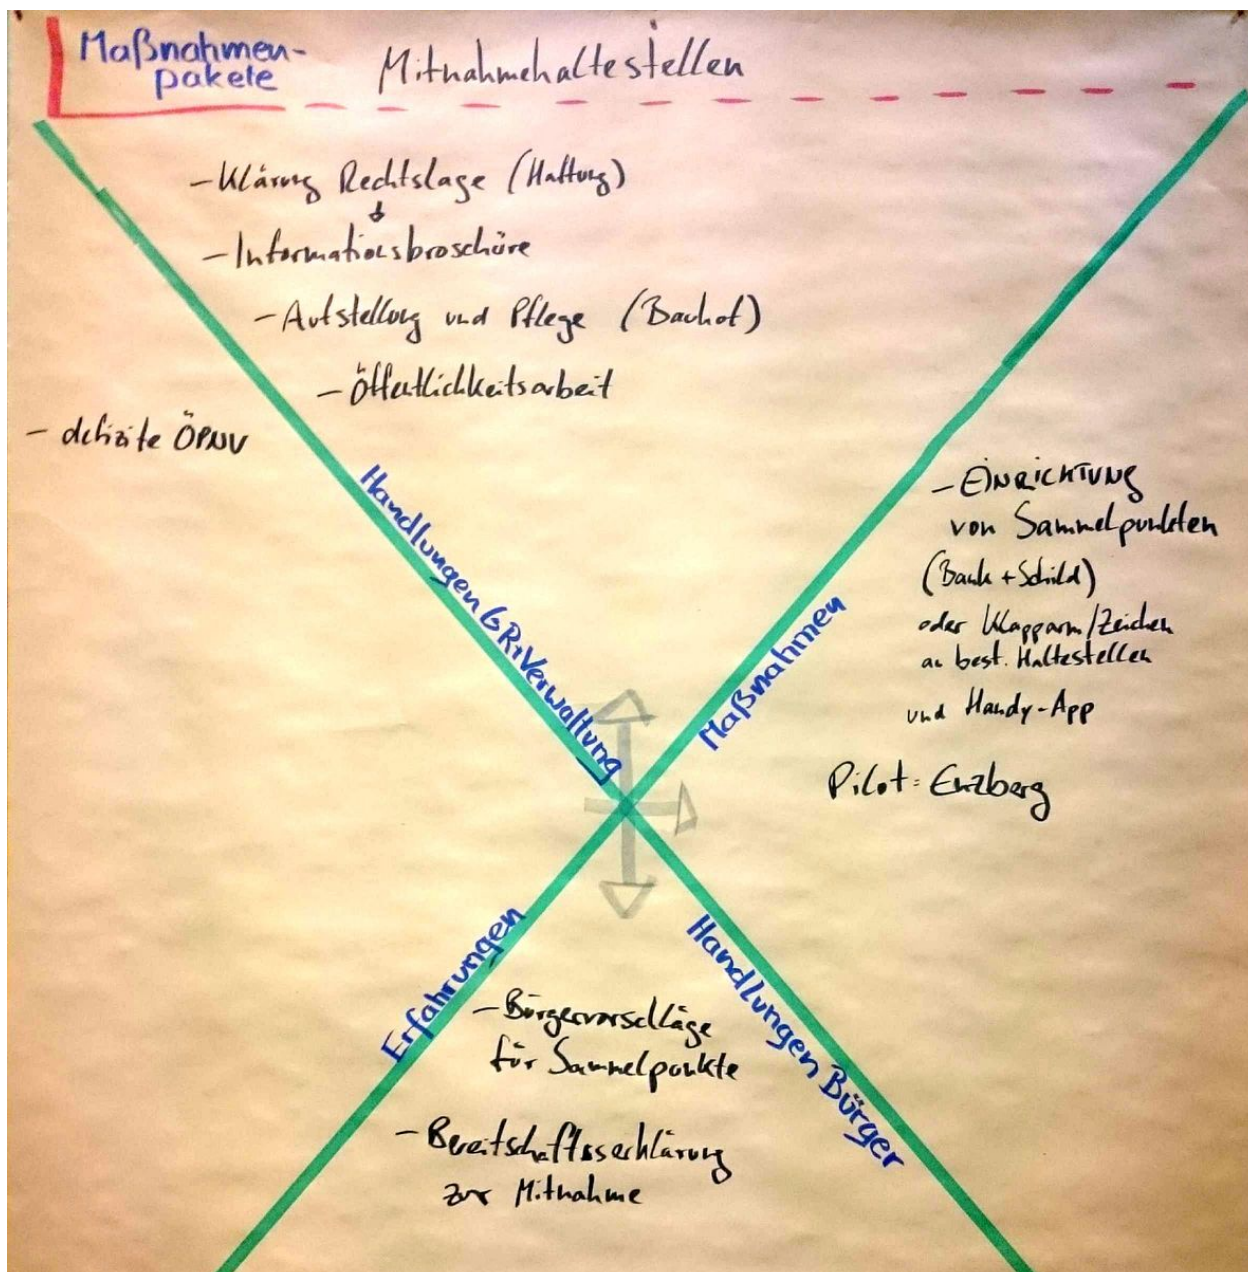 Maßnahmen-
pakete
Mitnahmehaltestellen
- Klärung Rechtslage (Haftung)
- Informationsbroschüre
- Aufstellung und Pflege (Bauhof)
- Öffentlichkeitsarbeit
- defizite ÖPNV
Handlungen GR/Verwaltung
Maßnahmen
- EINRICHTUNG
von Sammelpunkten
(Bank + Schild)
oder Klapparm/Zeichen
an best. Haltestellen
und Handy-App
Pilot: Enzberg
Erfahrungen
Handlungen Bürger
- Bürgervorschläge
für Sammelpunkte
- Bereitschaftsserklärung
zur Mitnahme